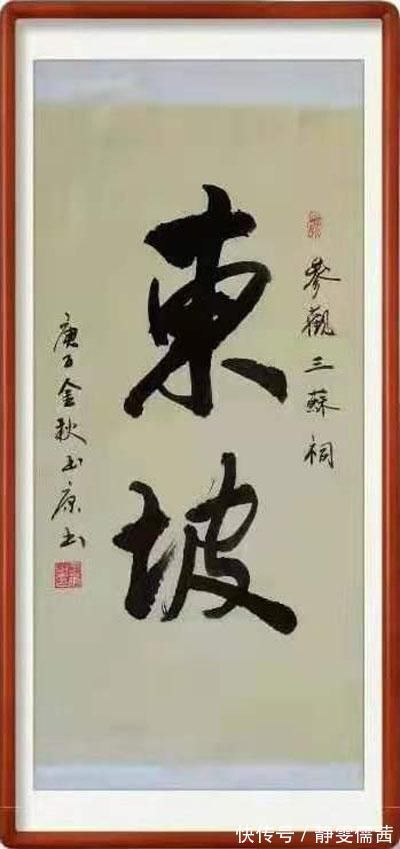 參觀三蘇祠
東坡
庚子金秋玉原书
快传号/静雯儒茜